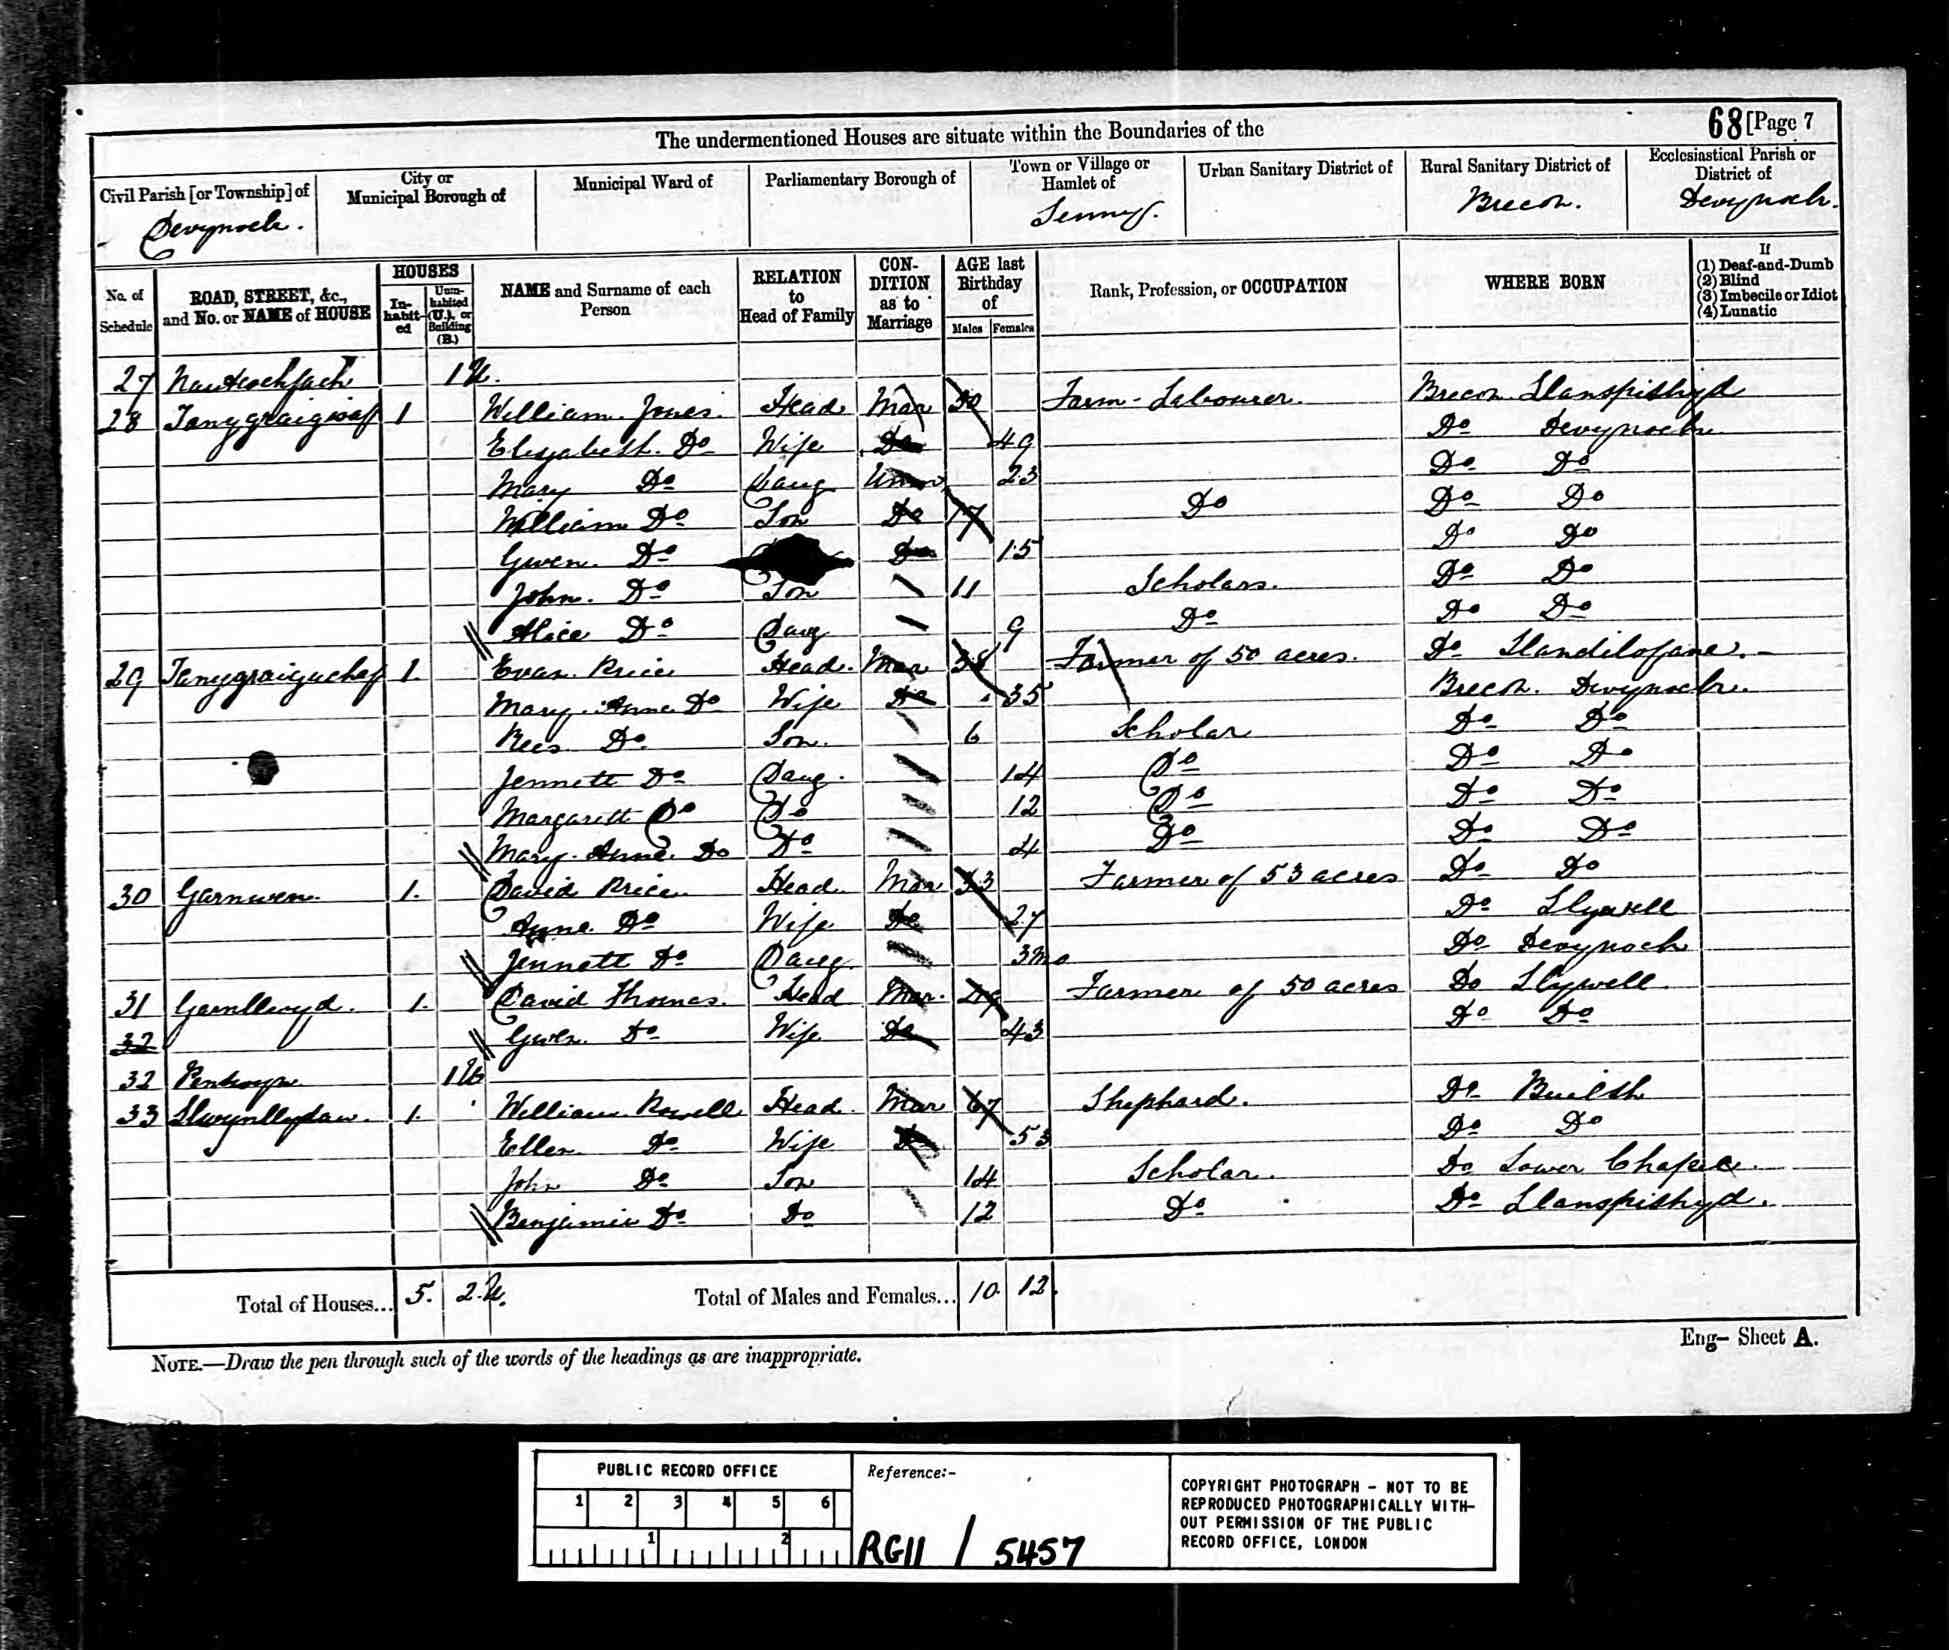 68 [Page 7
The undermentioned Houses are situate within the Boundaries of the
Civil Parish [or Township] of
Devynock.
City or Municipal Borough of
Municipal Ward of
Parliamentary Borough of
Town or Village or Hamlet of
Senny.
Urban Sanitary District of
Rural Sanitary District of
Brecon.
Ecclesiastical Parish or District of
Devynock.
No. of Schedule
ROAD, STREET, &c., and No. or NAME of HOUSE
HOUSES
In-habit-ed
Unin-habited (U.), or Building (B.)
NAME and Surname of each Person
RELATION to Head of Family
CON-DITION as to Marriage
AGE last Birthday of
Males Females
Rank, Profession, or OCCUPATION
WHERE BORN
If
(1) Deaf-and-Dumb
(2) Blind
(3) Imbecile or Idiot
(4) Lunatic
27 1 U.
28 Tanygraigisaf 1 William Jones. Head Mar 50 Farm-Labourer. Brecon Llanspithyd
Elizabeth Do Wife Do 49 Do Devynock
Mary Do Daug Unm 23 Do Do
William Do Son Do 17 Do Do Do
Gwen. Do Do 15 Do Do
John. Do Son 11 Scholars. Do Do
Alice Do Daug 9 Do Do Do
29 Tanygraiguchaf 1. Evan Price Head. Mar Farmer of 50 acres. Do Llandilofane.
Mary Anne Do Wife Do 35 Brecon. Devynock.
Rees Do Son. 6 Scholar Do Do
Jennett Do Daug. 14 Do Do Do
Margarett Do Do 12 Do Do Do
Mary Anne Do Do 4 Do Do Do
30 Garnwen. 1. David Price Head Mar 33 Farmer of 53 acres Do Do
Anne Do Wife Do 27 Do Llywell
Jennett Do Daug. 3mo Do Devynock
31 Garnllwyd. 1. David Thomas. Head Mar. 29 Farmer of 50 acres Do Llywell.
32 Gwen Do Wife Do 43 Do Do
32 Pentwyn 1 U
33 1. William Powell Head. Mar 67 Shephard. Do Builth
Ellen Do Wife Do 53 Do Do
John Do Son 14 Scholar. Do Lower Chapel.
Benjamin Do Do 12 Do Do Llanspithyd.
Total of Houses... 5. 2. U. Total of Males and Females... 10 12.
Eng- Sheet A.
NOTE.—Draw the pen through such of the words of the headings as are inappropriate.
PUBLIC RECORD OFFICE
1 2 3 4 5 6
1 2
Reference:-
RG11 / 5457
COPYRIGHT PHOTOGRAPH - NOT TO BE
REPRODUCED PHOTOGRAPHICALLY WITH-
OUT PERMISSION OF THE PUBLIC
RECORD OFFICE, LONDON